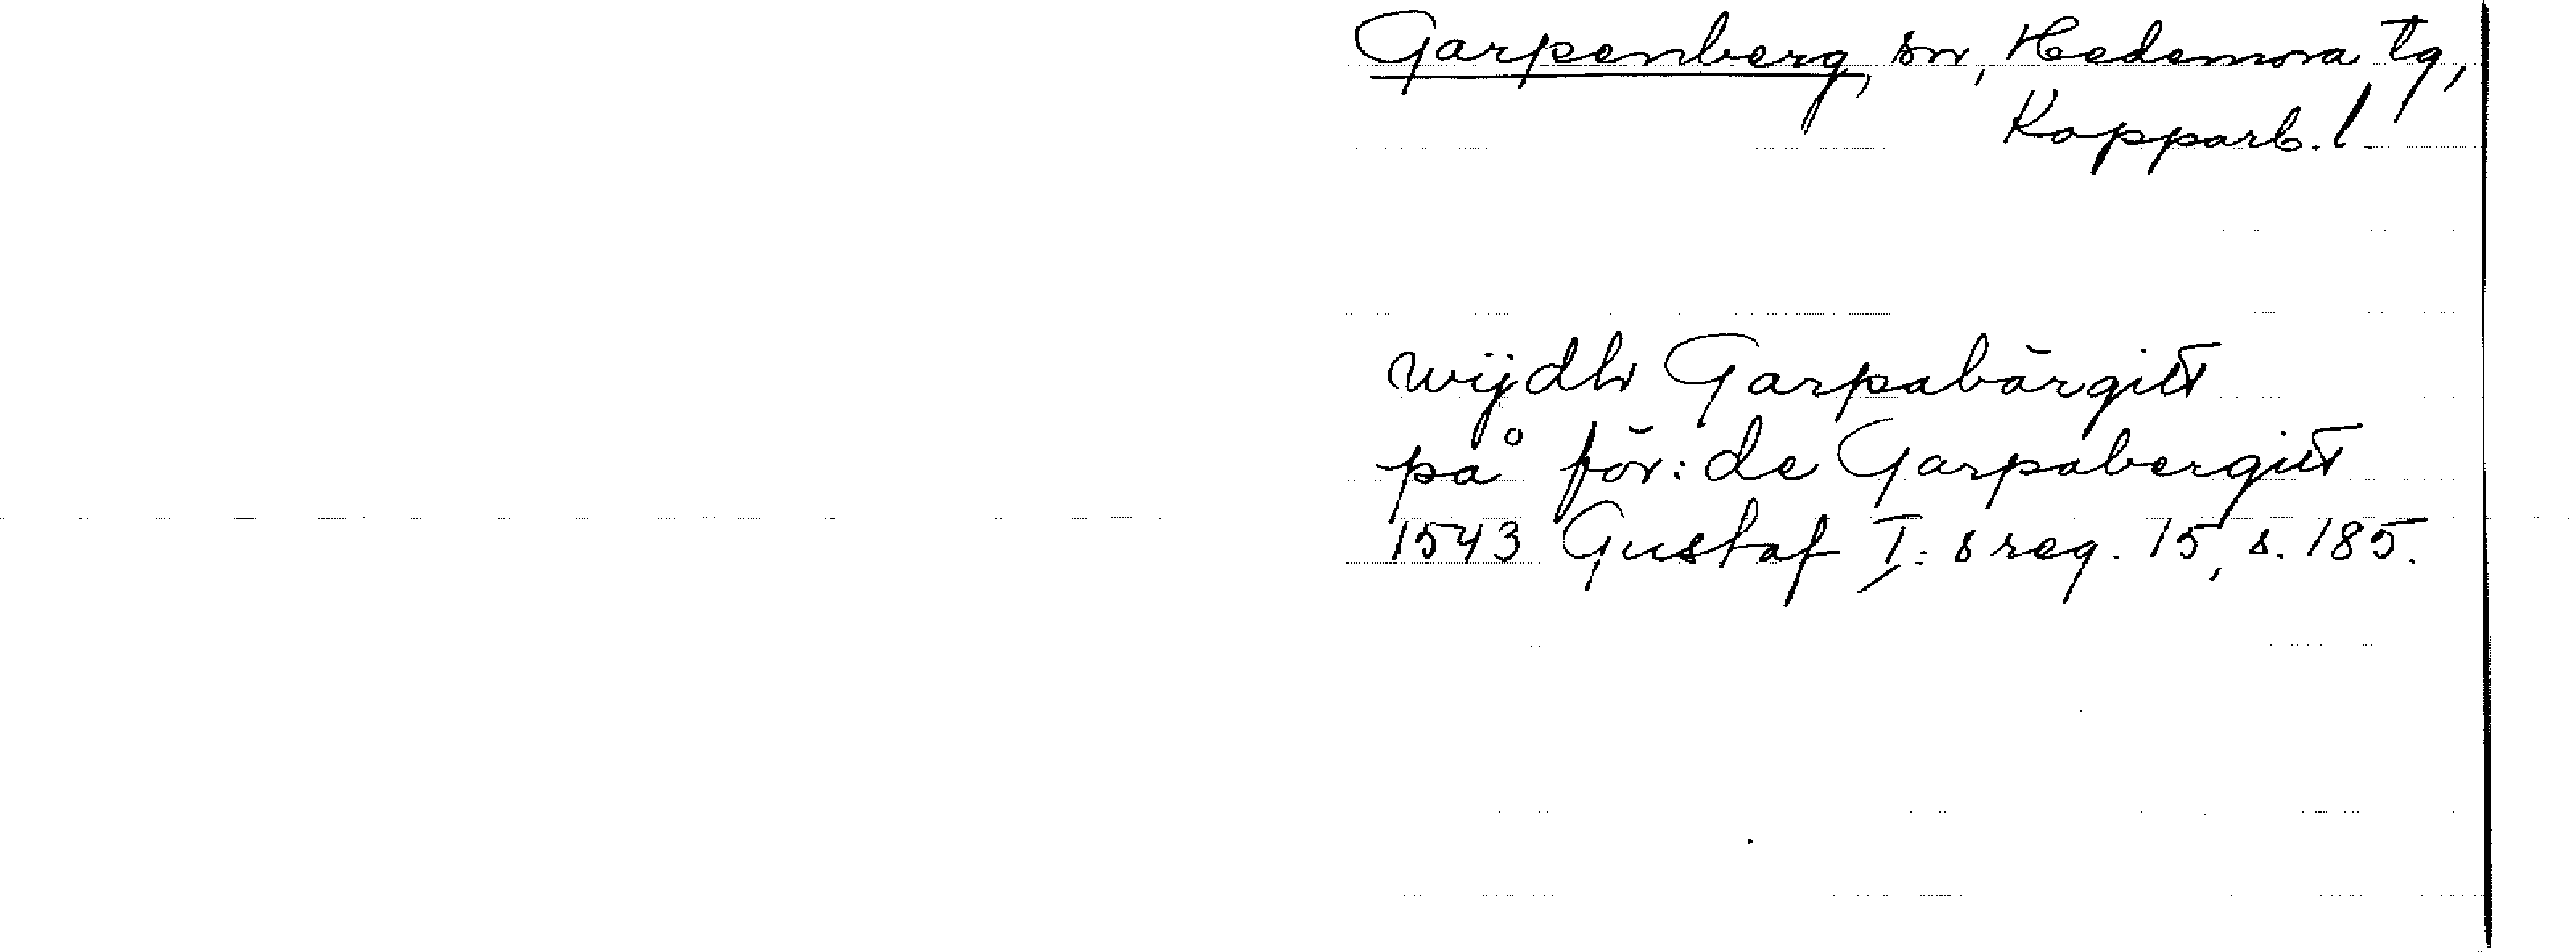 Garpenberg, sn, Hedemora tg,
Kopparb. l
wijdh Garpabärgitt
på för:de Garpabergitt
1543 Gustaf I:s reg. 15, s. 185.